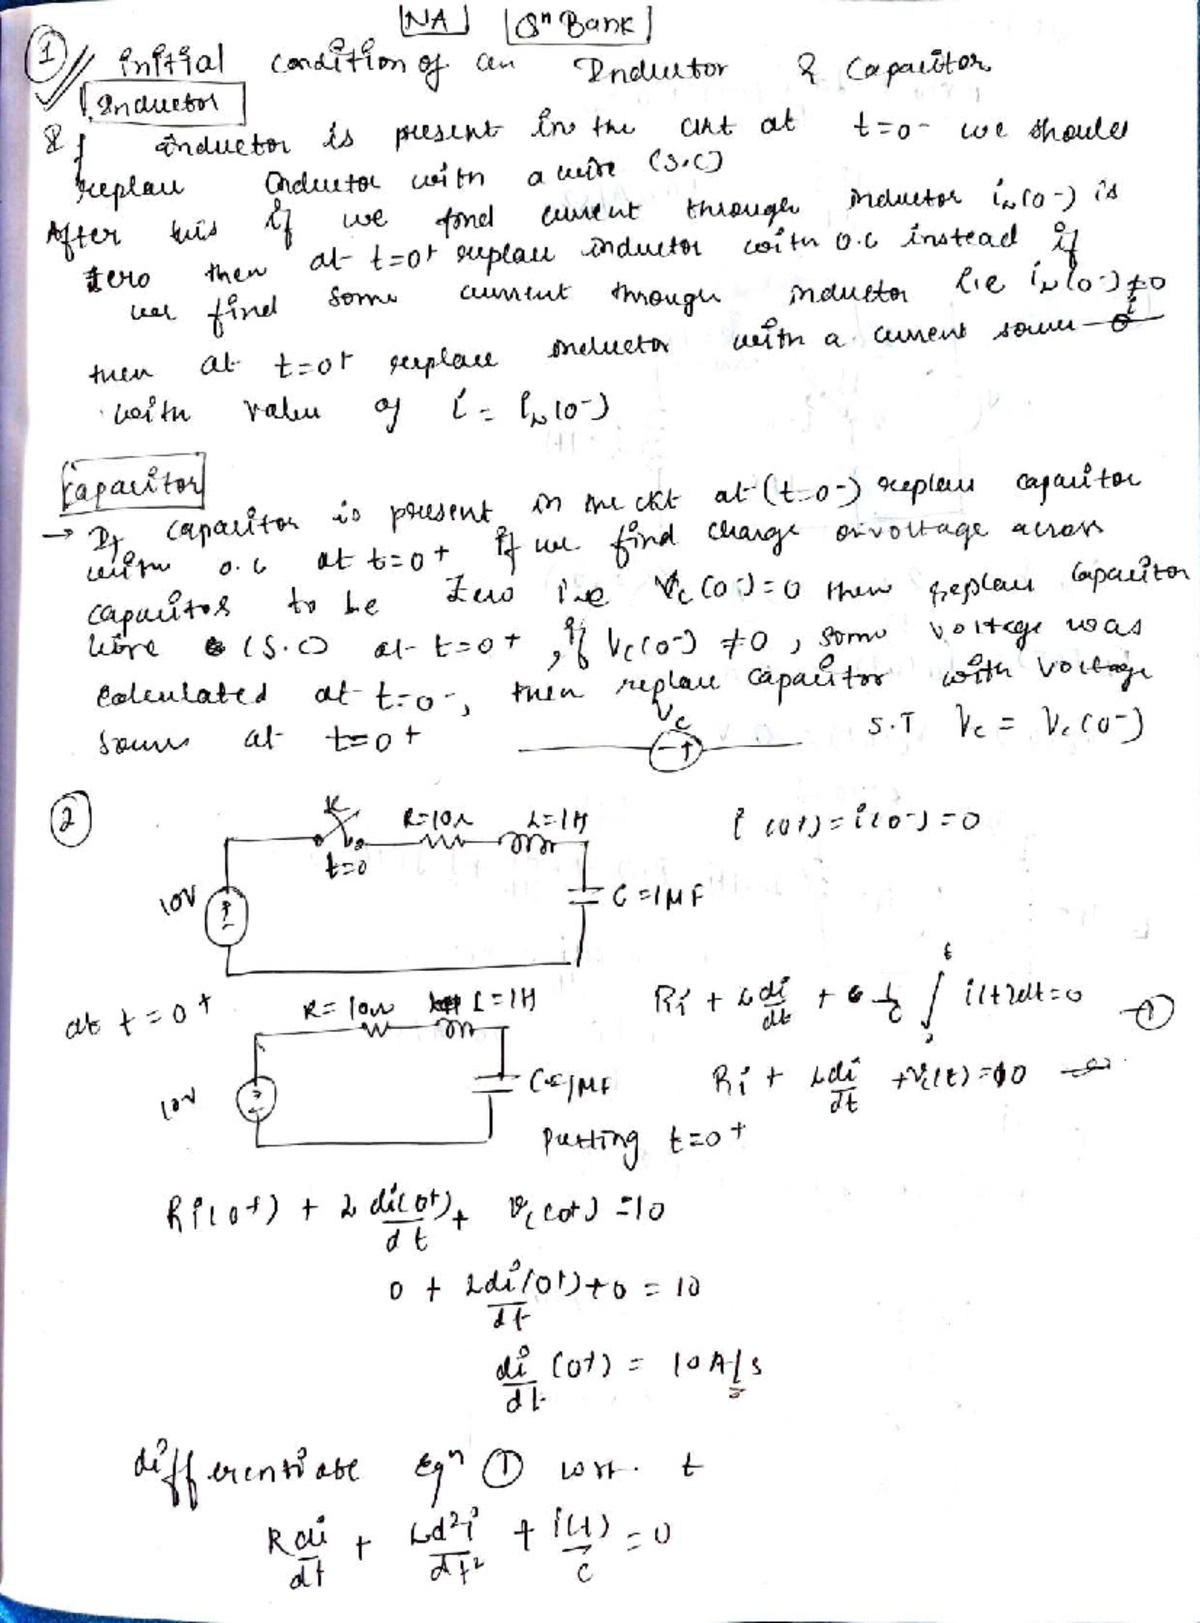 NA Qn Bank
1 initial condition of an Inductor & Capacitor
Inductor
If inductor is present in the ckt at t=0- we should
replace Inductor with a wire (S.C)
After this if we find current through inductor iN(0-) is
zero then at t=0+ replace inductor with O.C instead if
we find some current through inductor i.e iN(0-)≠0
then at t=0+ replace inductor with a current source
with value of i = iN(0-)
Capacitor
→ If capacitor is present in the ckt at (t=0-) replace capacitor
with o.c at t=0+ if we find charge or voltage across
capacitor to be zero i.e Vc(0-)=0 then replace capacitor
wire (S.C) at t=0+, if Vc(0-) ≠0, some voltage was
calculated at t=0-, then replace capacitor with voltage
source at t=0+ Vc - + S.T Vc = Vc(0-)
2 K t=0 R=10Ω L=1H i(0+)=i(0-)=0
10V C=1μF
at t=0+ R=10Ω L=1H Ri + L di/dt + 1/C ∫ i(t)dt=0 — ①
10V C=1μF Ri + L di/dt + Vc(t)=10
putting t=0+
Ri(0+) + L di(0+)/dt + Vc(0+) =10
0 + L di(0+)/dt +0 = 10
di/dt (0+) = 10 A/s
differentiate Eqn ① w.r.t. t
R di/dt + L d²i/dt² + i(t)/C =0